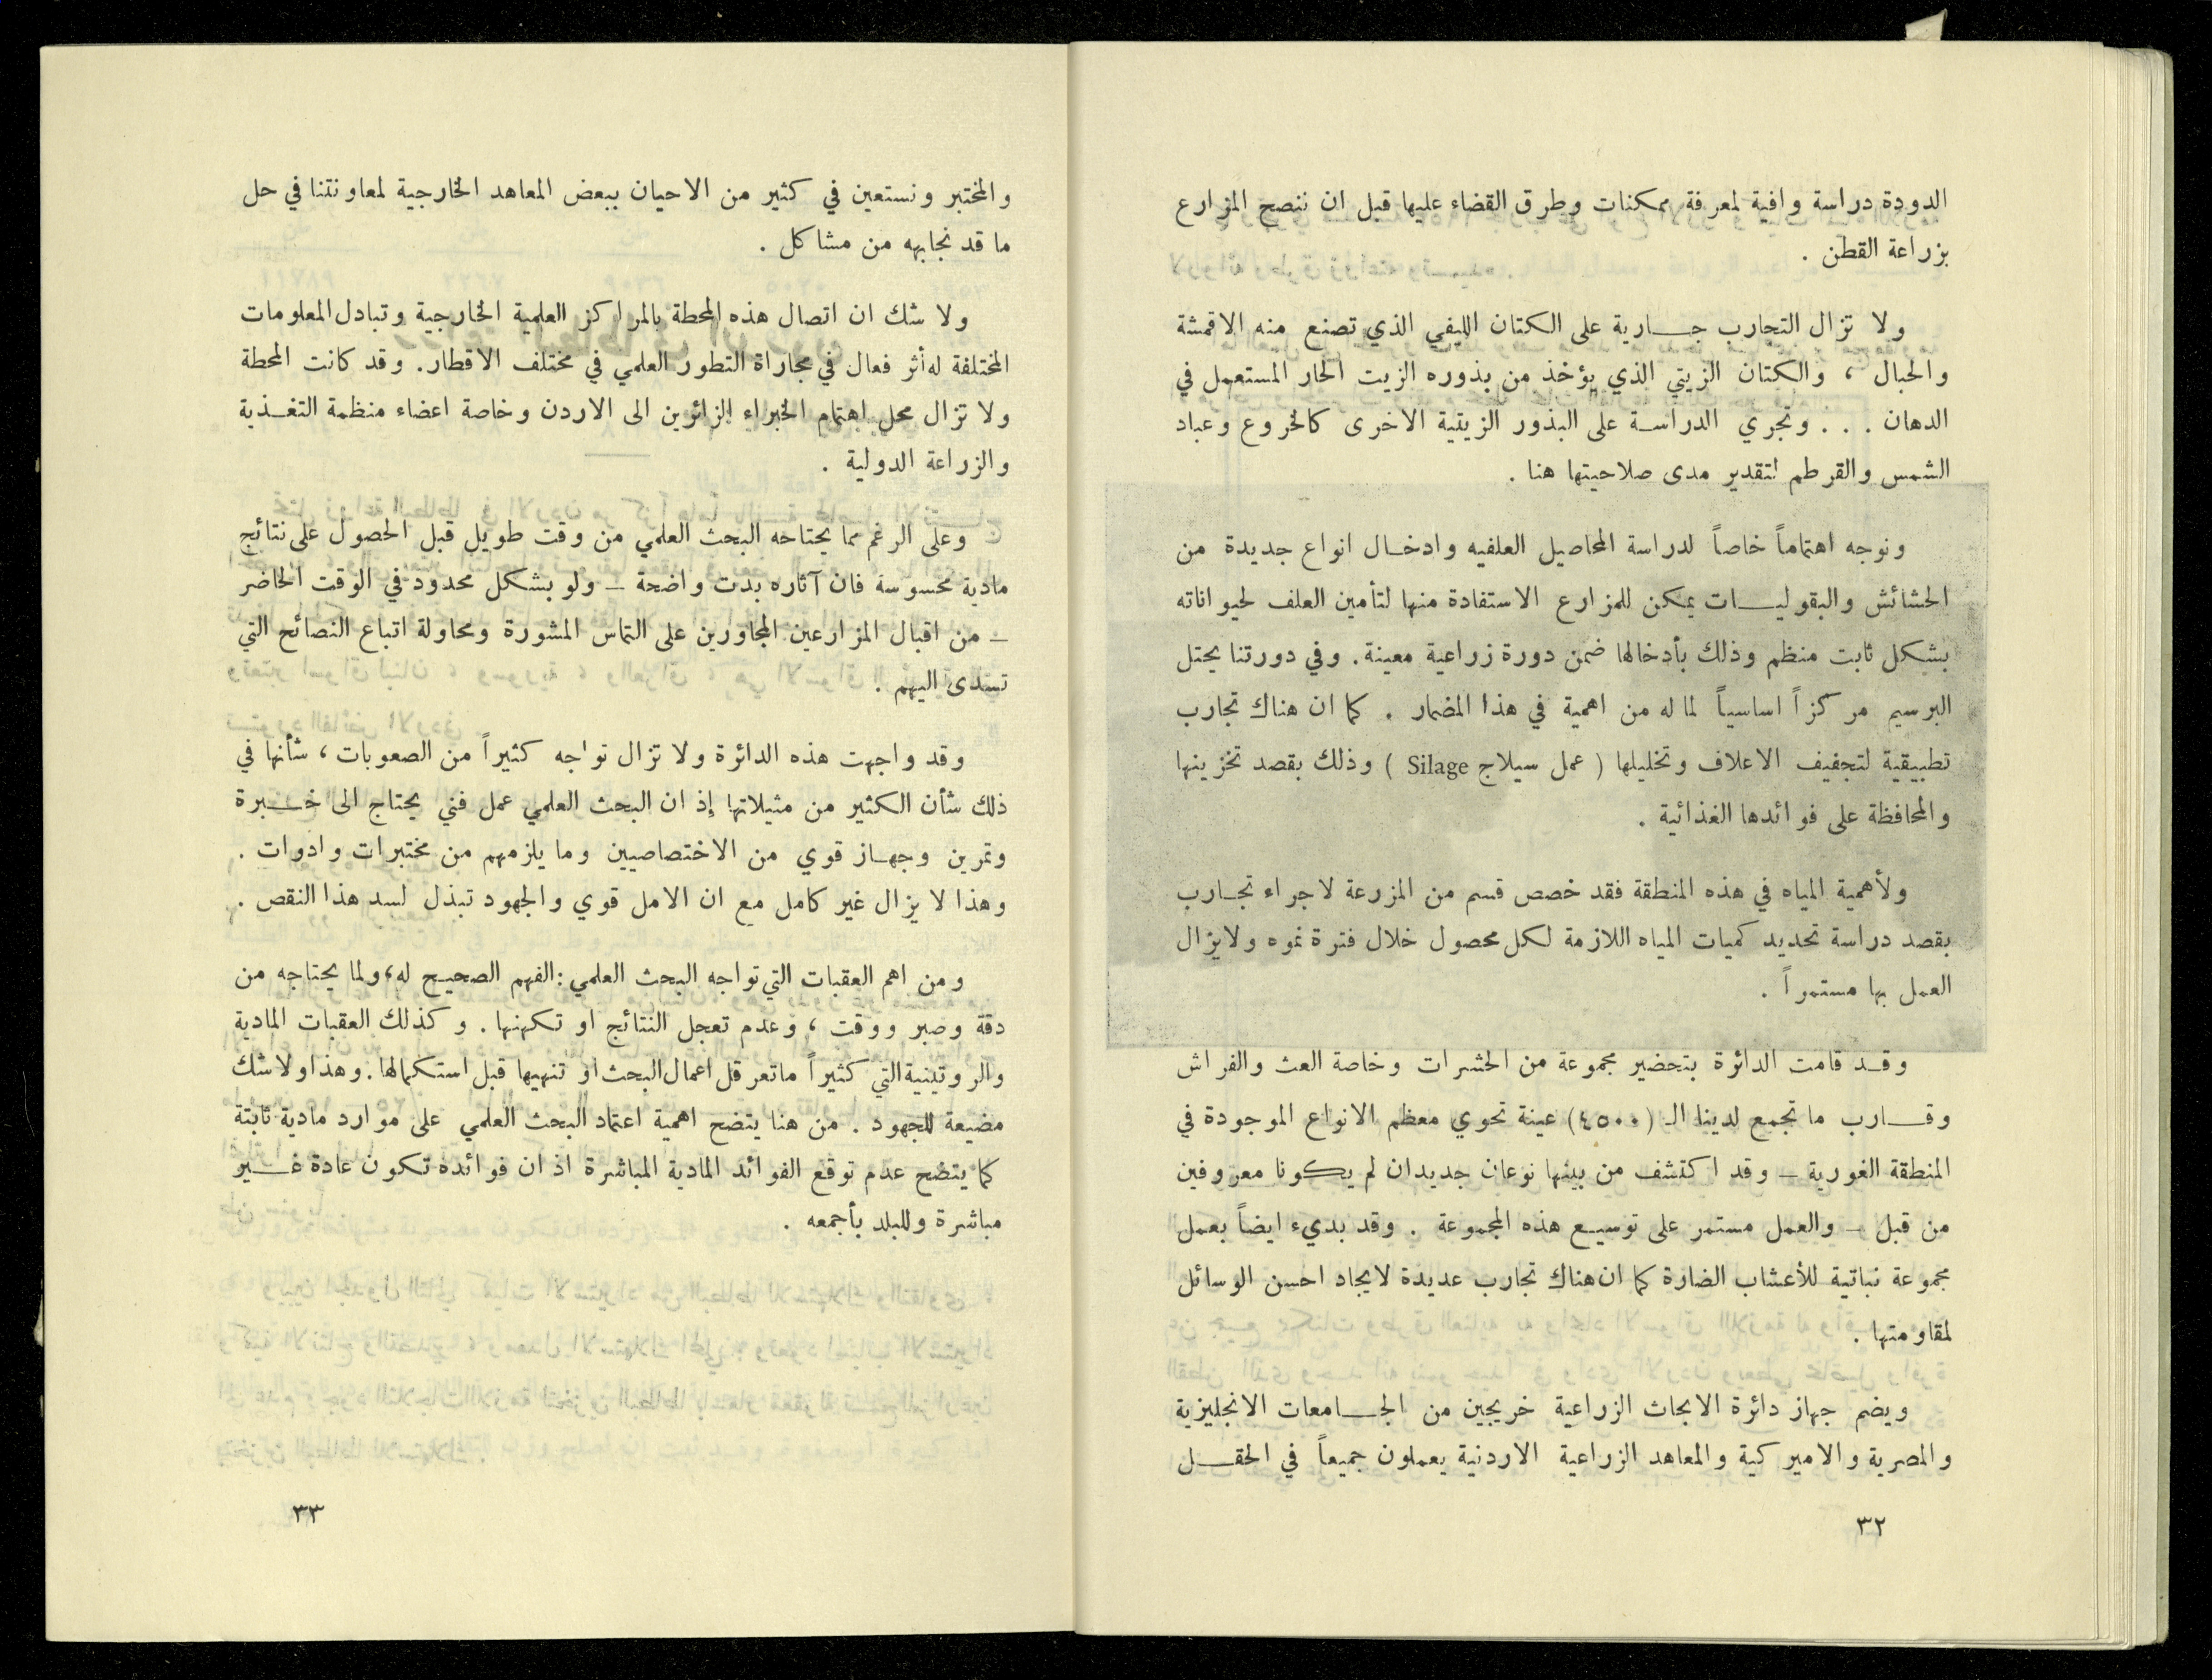 الدودة دراسة وافية لمعرفة ممكنات وطرق القضاء عليها قبل ان ننصح المزارع
بزراعة القطن .
ولا تزال التجارب جارية على الكتان الليفي الذي تصنع منه الاقمشة
والحبال ، والكتان الزيتي الذي يؤخذ من بذوره الزيت الحار المستعمل في
الدهان . . . وتجري الدراسة على البذور الزيتية الاخرى كالخروع وعباد
الشمس والقرطم لتقدير مدى صلاحيتها هنا .
ونوجه اهتماماً خاصاً لدراسة المحاصيل العلفيه وادخال انواع جديدة من
الحشائش والبقوليات يمكن للمزارع الاستفادة منها لتأمين العلف لحيواناته
بشكل ثابت منظم وذلك بأدخالها ضمن دورة زراعية معينة . وفي دورتنا يحتل
البرسيم مركزاً اساسياً لما له من اهمية في هذا المضمار . كما ان هناك تجارب
تطبيقية لتجفيف الاعلاف وتخليلها ( عمل سيلاج Silage ) وذلك بقصد تخزينها
والمحافظة على فوائدها الغذائية .
ولأهمية المياه في هذه المنطقة فقد خصص قسم من المزرعة لاجراء تجارب
بقصد دراسة تحديد كميات المياه اللازمة لكل محصول خلال فترة نموه ولايزال
العمل بها مستمراً .
وقد قامت الدائرة بتحضير مجموعة من الحشرات وخاصة العث والفراش
وقارب ما تجمع لدينا الـ (٤٥٠٠) عينة تحوي معظم الانواع الموجودة في
المنطقة الغورية – وقد اكتشف من بينها نوعان جديدان لم يكونا معروفين
من قبل – والعمل مستمر على توسيع هذه المجموعة . وقد بديء ايضاً بعمل
مجموعة نباتية للأعشاب الضارة كما ان هناك تجارب عديدة لايجاد احسن الوسائل
لمقاومتها .
ويضم جهاز دائرة الابحاث الزراعية خريجين من الجامعات الانجليزية
والمصرية والاميركية والمعاهد الزراعية الاردنية يعملون جميعاً في الحقل
٣٢
والمختبر ونستعين في كثير من الاحيان ببعض المعاهد الخارجية لمعاونتنا في حل
ما قد نجابهه من مشاكل .
ولا شك ان اتصال هذه المحطة بالمراكز العلمية الخارجية وتبادل المعلومات
المختلفة له أثر فعال في مجاراة التطور العلمي في مختلف الاقطار . وقد كانت المحطة
ولا تزال محل اهتمام الخبراء الزائرين الى الاردن وخاصة اعضاء منظمة التغذية
والزراعة الدولية .
وعلى الرغم مما يحتاجه البحث العلمي من وقت طويل قبل الحصول على نتائج
مادية محسوسة فان آثاره بدت واضحة – ولو بشكل محدود في الوقت الحاضر
– من اقبال المزارعين المجاورين على التماس المشورة ومحاولة اتباع النصائح التي
تسدى اليهم .
وقد واجهت هذه الدائرة ولا تزال تواجه كثيراً من الصعوبات ، شأنها في
ذلك شأن الكثير من مثيلاتها إذ ان البحث العلمي عمل فني يحتاج الى خبرة
وتمرين وجهاز قوي من الاختصاصيين وما يلزمهم من مختبرات وادوات .
وهذا لا يزال غير كامل مع ان الامل قوي والجهود تبذل لسد هذا النقص .
ومن اهم العقبات التي تواجه البحث العلمي : الفهم الصحيح له ، ولما يحتاجه من
دقة وصبر ووقت ، وعدم تعجل النتائج او تكهنها . وكذلك العقبات المادية
والروتينية التي كثيراً ماتعرقل اعمال البحث او تنهيها قبل استكمالها . وهذا ولا شك
مضيعة للجهود . من هنا يتضح اهمية اعتماد البحث العلمي على موارد مادية ثابتة
كما يتضح عدم توقع الفوائد المادية المباشرة اذ ان فوائده تكون عادة غير
مباشرة وللبلد بأجمعه .
٣٣